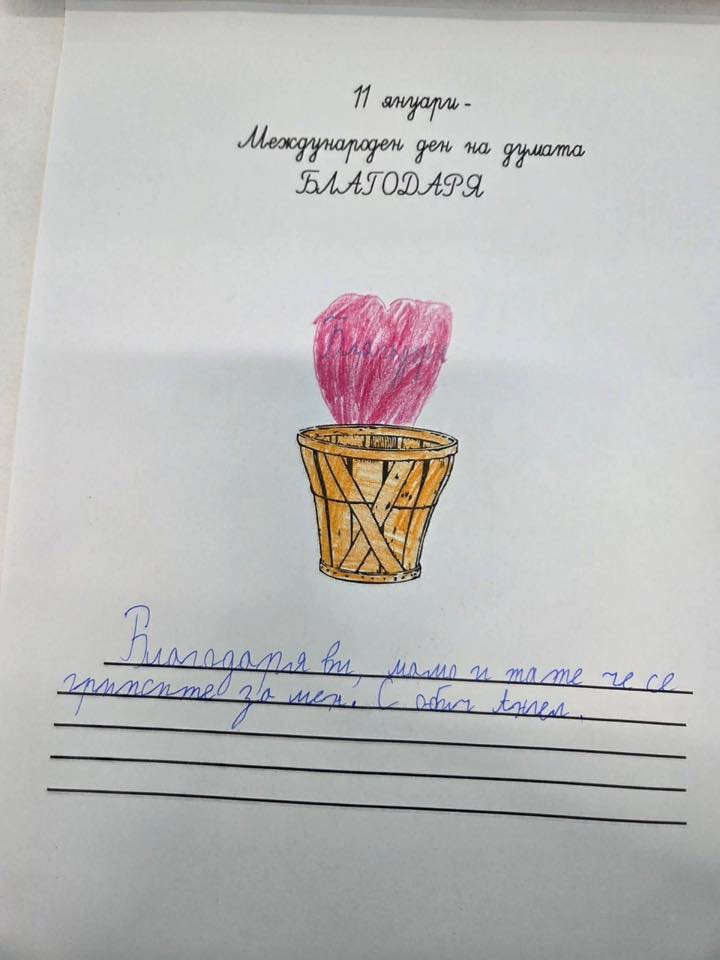 11 януари -
Международен ден на думата
БЛАГОДАРЯ
Благодаря
Благодаря ви, мамо и тате че се
грижите за мен. С обич Ангел.